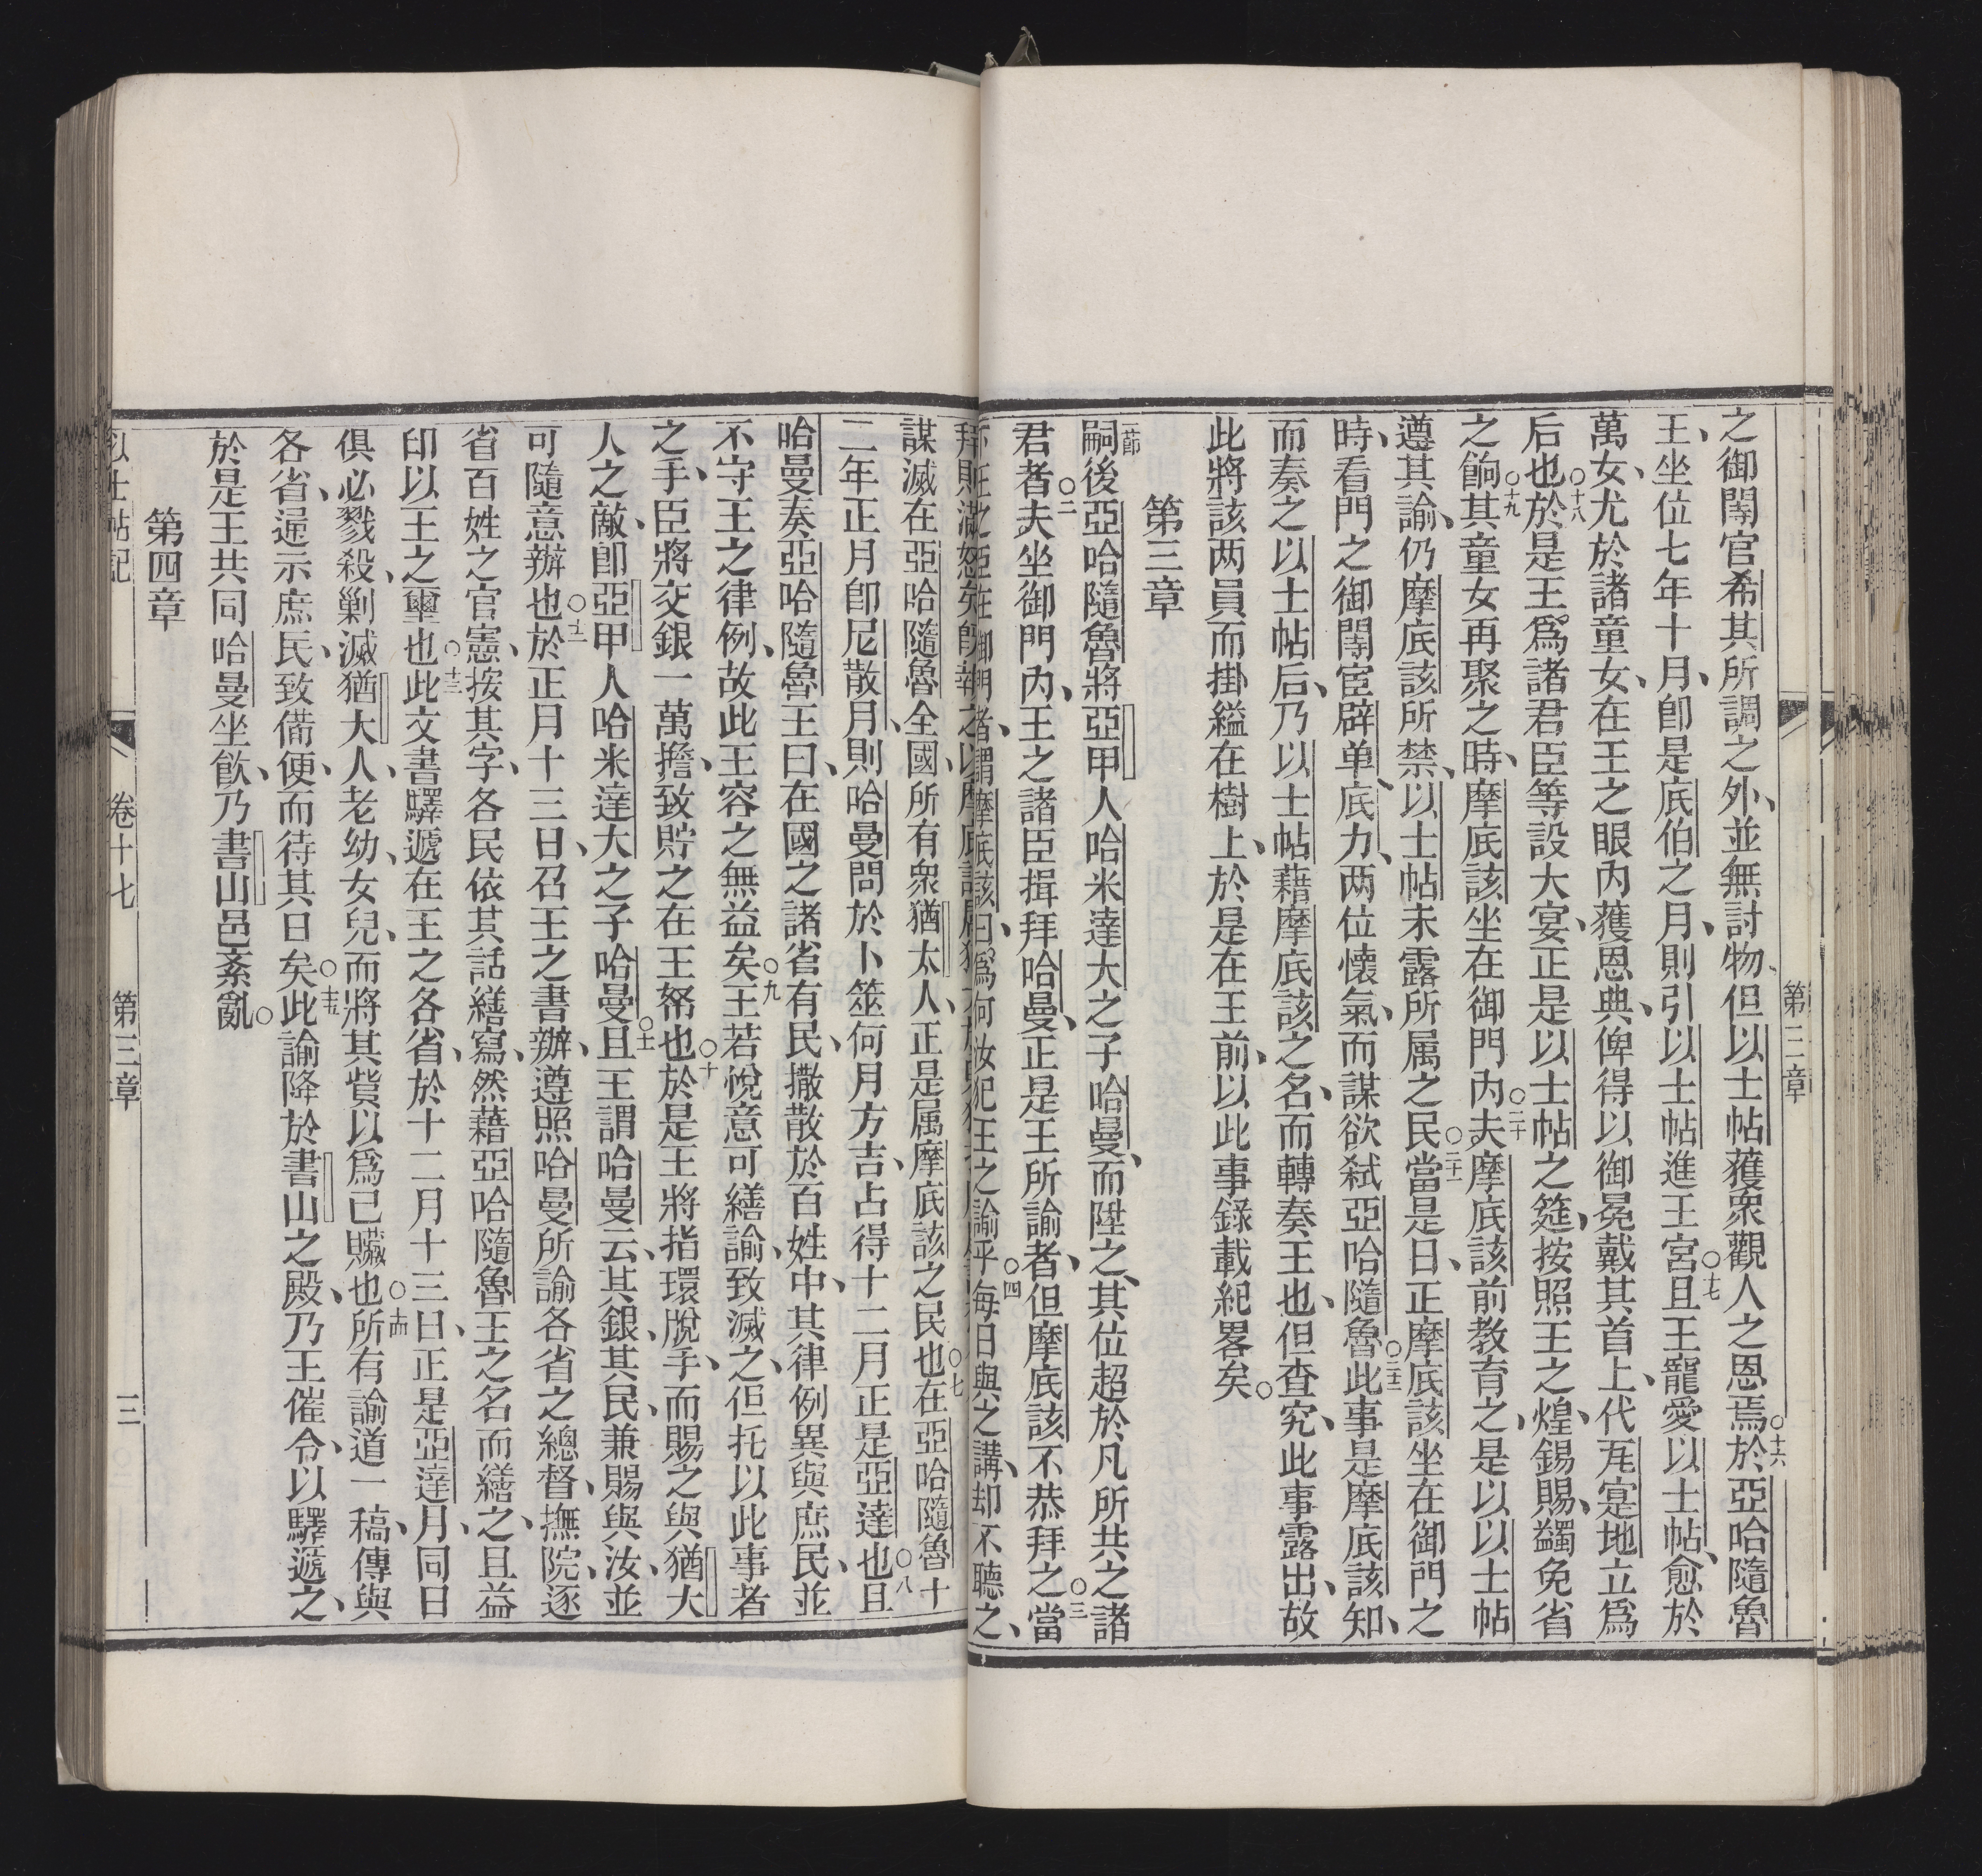 第三章
之御闈官希其所調之外、並無討物、但以士帖蒦衆觀人之恩焉○十六於亞哈隨魯
王、坐位七年十月、卽是底伯之月、則引以士帖進王宮○十七且王寵愛以士帖、愈於
萬女、尤於諸童女、在王之眼內獲恩典、俾得以御冕戴其首上、代瓦寔地立爲
后也○十八於是王爲諸君臣等設大宴、正是以士帖之筵、按照王之煌錫賜、蠲免省
之餉○十九其童女再聚之時、摩底該坐在御門內○二十夫摩底該前教育之、是以以士帖
遵其諭、仍摩底該所禁、以士帖未露所属之民○二十一當是日、正摩底該坐在御門之
時、看門之御闈宦辟单、底力、两位懷氣、而謀欲弑亞哈隨魯○二十二此事是摩底該知、
而奏之以士帖后、乃以士帖藉摩底該之名、而轉奏王也、但查究、此事露出、故
此將該两員而掛縊在樹上、於是在王前、以此事錄載紀畧矣○
第三章
一節嗣後亞哈隨魯將亞甲人哈米達大之子哈曼、而陞之、其位超於凡所共之諸
君者○二夫坐御門內、王之諸臣揖拜哈曼、正是王所諭者、但摩底該不恭拜之○三當
在御門者、謂摩底該曰、爲何汝犯王之諭乎○四每日與之講、却不聽之、
謀滅在亞哈隨魯全國、所有衆猶太人、正是属摩底該之民也○七在亞哈隨魯十
二年正月卽尼散月、則哈曼問於卜筮何月方吉、占得十二月正是亞達也○八且
哈曼奏亞哈隨魯王曰、在國之諸省有民、撒散於百姓中、其律例異與庶民、並
不守王之律例、故此王容之無益矣○九王若悅意可繕諭、致滅之、但托以此事者
之手、臣將交銀一萬擔、致貯之在王帑也○十於是王將指環脫手、而賜之與猶大
人之敵、卽亞甲人哈米達大之子哈曼○十一且王謂哈曼云、其銀、其民、兼賜與汝、並
可隨意辦也○十二於正月十三日、召王之書辦、遵照哈曼所諭各省之總督、撫院、逐
省百姓之官憲、按其字、各民依其話繕寫、然藉亞哈隨魯王之名而繕之、且益
印以王之璽也○十三此文書驛遞在王之各省、於十二月十三日、正是亞達月、同日
俱必戮殺、剿滅猶大人、老幼、女兒、而將其貲以爲已贜也○十四所有諭道一稿、傳與
各省、逞示庶民、致備便、而待其日矣○十五此諭降於書山之殿、乃王催令、以驛遞之、
於是王共同哈曼坐飲、乃書山邑紊亂○
第四章
以士帖記
卷十七
第三章
三